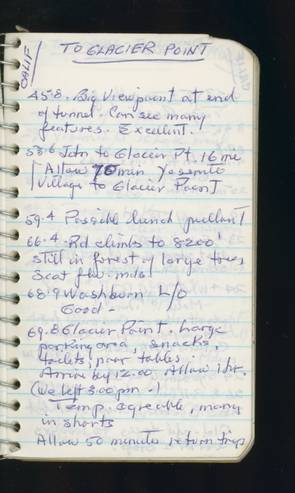 CALIF
TO GLACIER POINT
45.8. Big Viewpoint at end
of tunnel. Can see many
features. Excelint.
53.6 Jctn to Glacier Pt. 16 mi
Allow 70 min Yosemite
Village to Glacier Point
59.4 Possible lunch pullout
66.4. Rd climbs to 8200'
still in forest of large trees
Scat few mdos
68.9 Washburn L/O
Good -
69.8 Glacier Point. Large
parking area, snacks,
toilets, poor tables.
Arrive by 12:00. Allow 1 hr.
(We left 3:00 pm.)
Temp agreeable, many
in shorts
Allow 50 minutes return trip